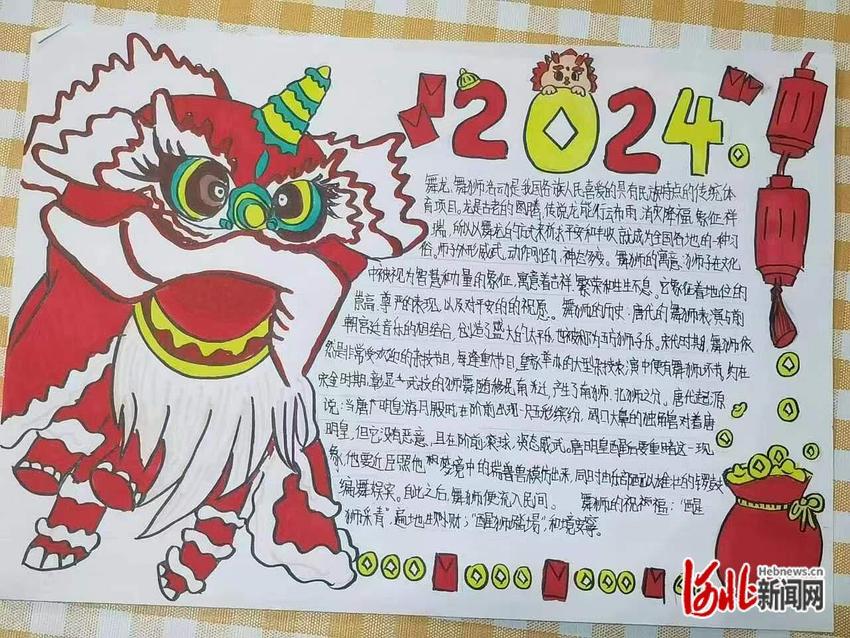 2024
舞龙、舞狮活动是我国各族人民喜爱的具有民族特点的传统体
育项目。龙是古老的图腾,传说龙能行云布雨、消灾降福,象征祥
瑞,所以以舞龙的方式来祈求平安和丰收就成为全国各地的一种习
俗。狮子外形威武,动作刚劲,神态多变。舞狮的寓意:狮子在文化
中被视为智慧和力量的象征,寓意着吉祥、繁荣和生生不息。它象征着地位的
崇高、尊严的表现,以及对平安的的祝愿。 舞狮的历史:唐代的舞狮表演与前
朝宫廷音乐的相结合,创造了盛大的太平乐,也被称为五方狮子乐。宋代时期,舞狮依
然是非常受欢迎的杂技节目,每逢重大节日,皇家举办的大型杂技表演中便有舞狮环节。
宋金时期,彰显武技的狮舞随移民南迁,产生了南狮、北狮之分。唐代起源
说:当唐明皇游月殿时,在阶前出现一只五彩缤纷,阔口大鼻的独角兽对着唐
明皇,但它没有恶意,且在阶前滚球,姿态威武。唐明皇醒后要重睹这一现
象,他要近臣照他梦境中的瑞兽兽模仿出来,同时由乐部配以雄壮的锣鼓
编舞娱宾。自此之后,舞狮便流入民间。 舞狮的祝福:“醒
狮采青”,遍地生财;“醒狮 ”和境安宁。
河北新闻网
Hebnews.cn